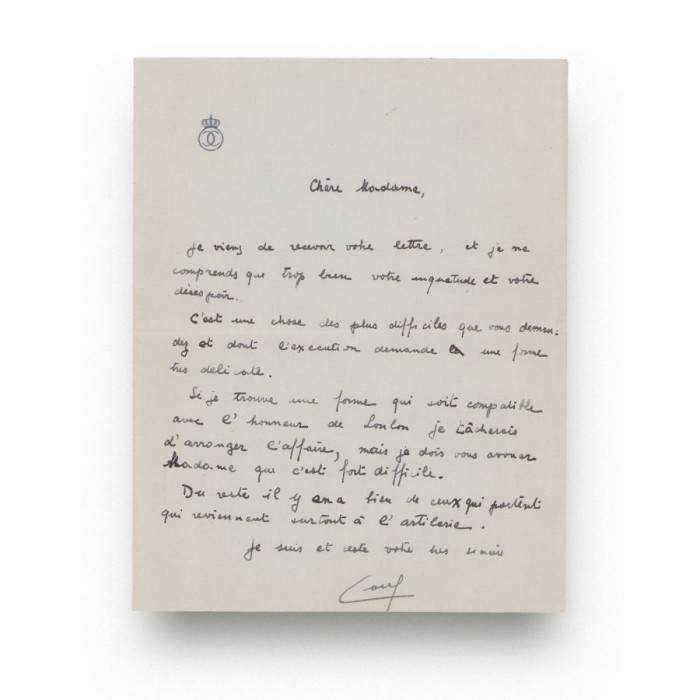 Chère Madame,
je viens de recevoir votre lettre, et je ne
comprends que trop bien votre inquietude et votre
désespoir.
C'est une chose des plus difficiles que vous deman:
dez et dont l'execution demande une forme
très delicate.
Si je trouve une forme qui soit compatible
avec l'honneur de Loulou je tâcherais
d'arranger l'affaire, mais je dois vous avouer
Madame que c'est fort difficile.
Du reste il y en a bien de ceux qui partent
qui reviennent surtout à l'artilerie.
Je suis et reste votre très sincère